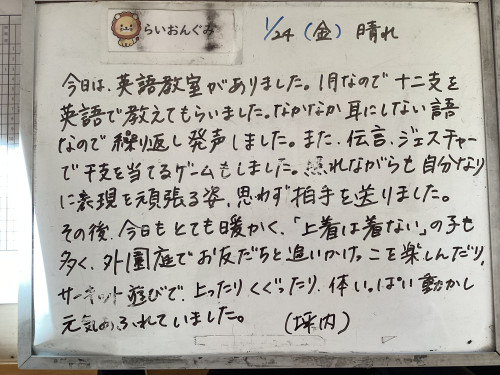 らいおんぐみ
1/24 (金) 晴れ
今日は、英語教室がありました。1月なので十二支を
英語で教えてもらいました。なかなか耳にしない語
なので繰り返し発声しました。また、伝言、ジェスチャー
で干支を当てるゲームもしました。照れながらも自分なり
に表現を頑張る姿、思わず拍手を送りました。
その後、今日もとても暖かく、「上着は着ない」の子も
多く、外園庭でお友だちと追いかけっこを楽しんだり、
サーキット遊びで、上ったりくぐったり、体いっぱい動かし
元気あふれていました。 (坪内)